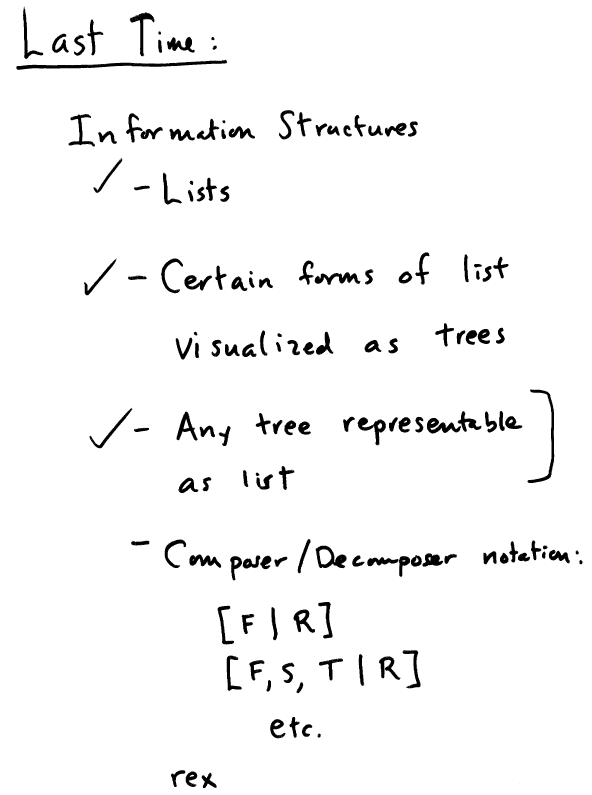 Last Time:
Information Structures
✓ - Lists
✓ - Certain forms of list
visualized as trees
✓ - Any tree representable ]
as list
- Composer/Decomposer notation:
[F|R]
[F, S, T | R]
etc.
rex